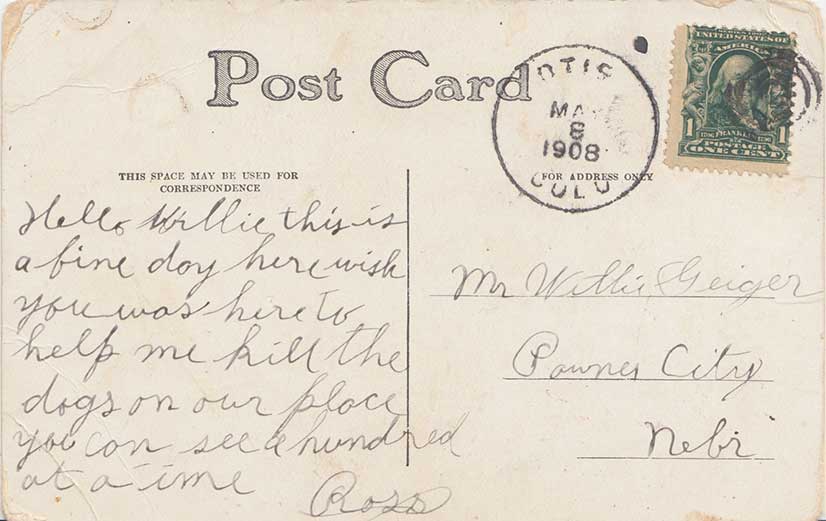 Post Card
OTIS
MA
8
1908
COLO
SERIES 1902
UNITED STATES OF
AMERICA
1 FRANKLIN 1
POSTAGE
ONE CENT
THIS SPACE MAY BE USED FOR
CORRESPONDENCE
FOR ADDRESS ONLY
Hello Willie this is
a fine day here wish
you was here to
help me kill the
dogs on our place
you can see a hundred
at a time
Ross
Mr Willie Geiger
Pawnee City
Nebr